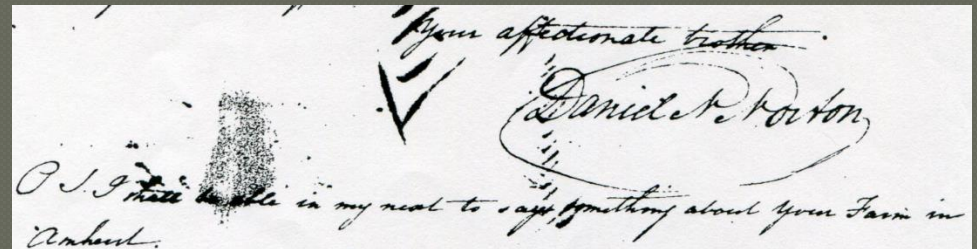 Your affectionate brother
Daniel N Norton
P S. I shall be able in my next to say something about your Farm in
Amherst.